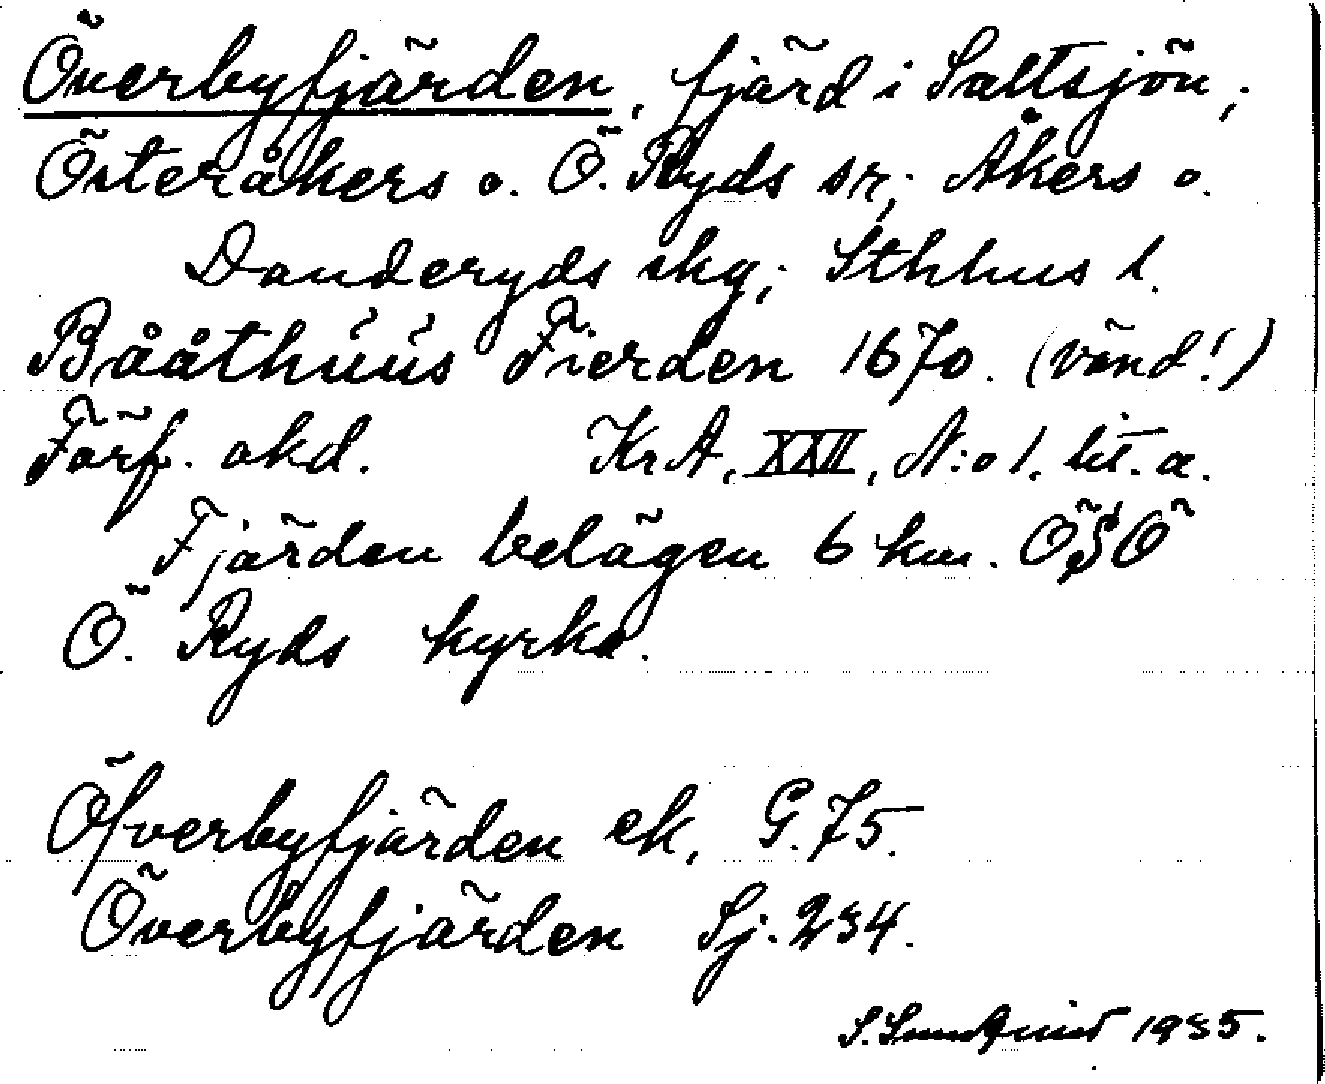 Överbyfjärden, fjärd i Saltsjön,;
Österåkers o. Ö. Ryds sr,; Åkers o.
Danderyds skg,; Sthlms l.
Bååthúús Fierden 1670. (vänd!)
Förf. okd. KrA, XXII, N:o 1. lit. a.
Fjärden belägen 6 km. ÖSÖ
Ö. Ryds kyrka.
Öfverbyfjärden ek, G. 75.
Överbyfjärden Sj. 234.
S. Sundqvist 1935.